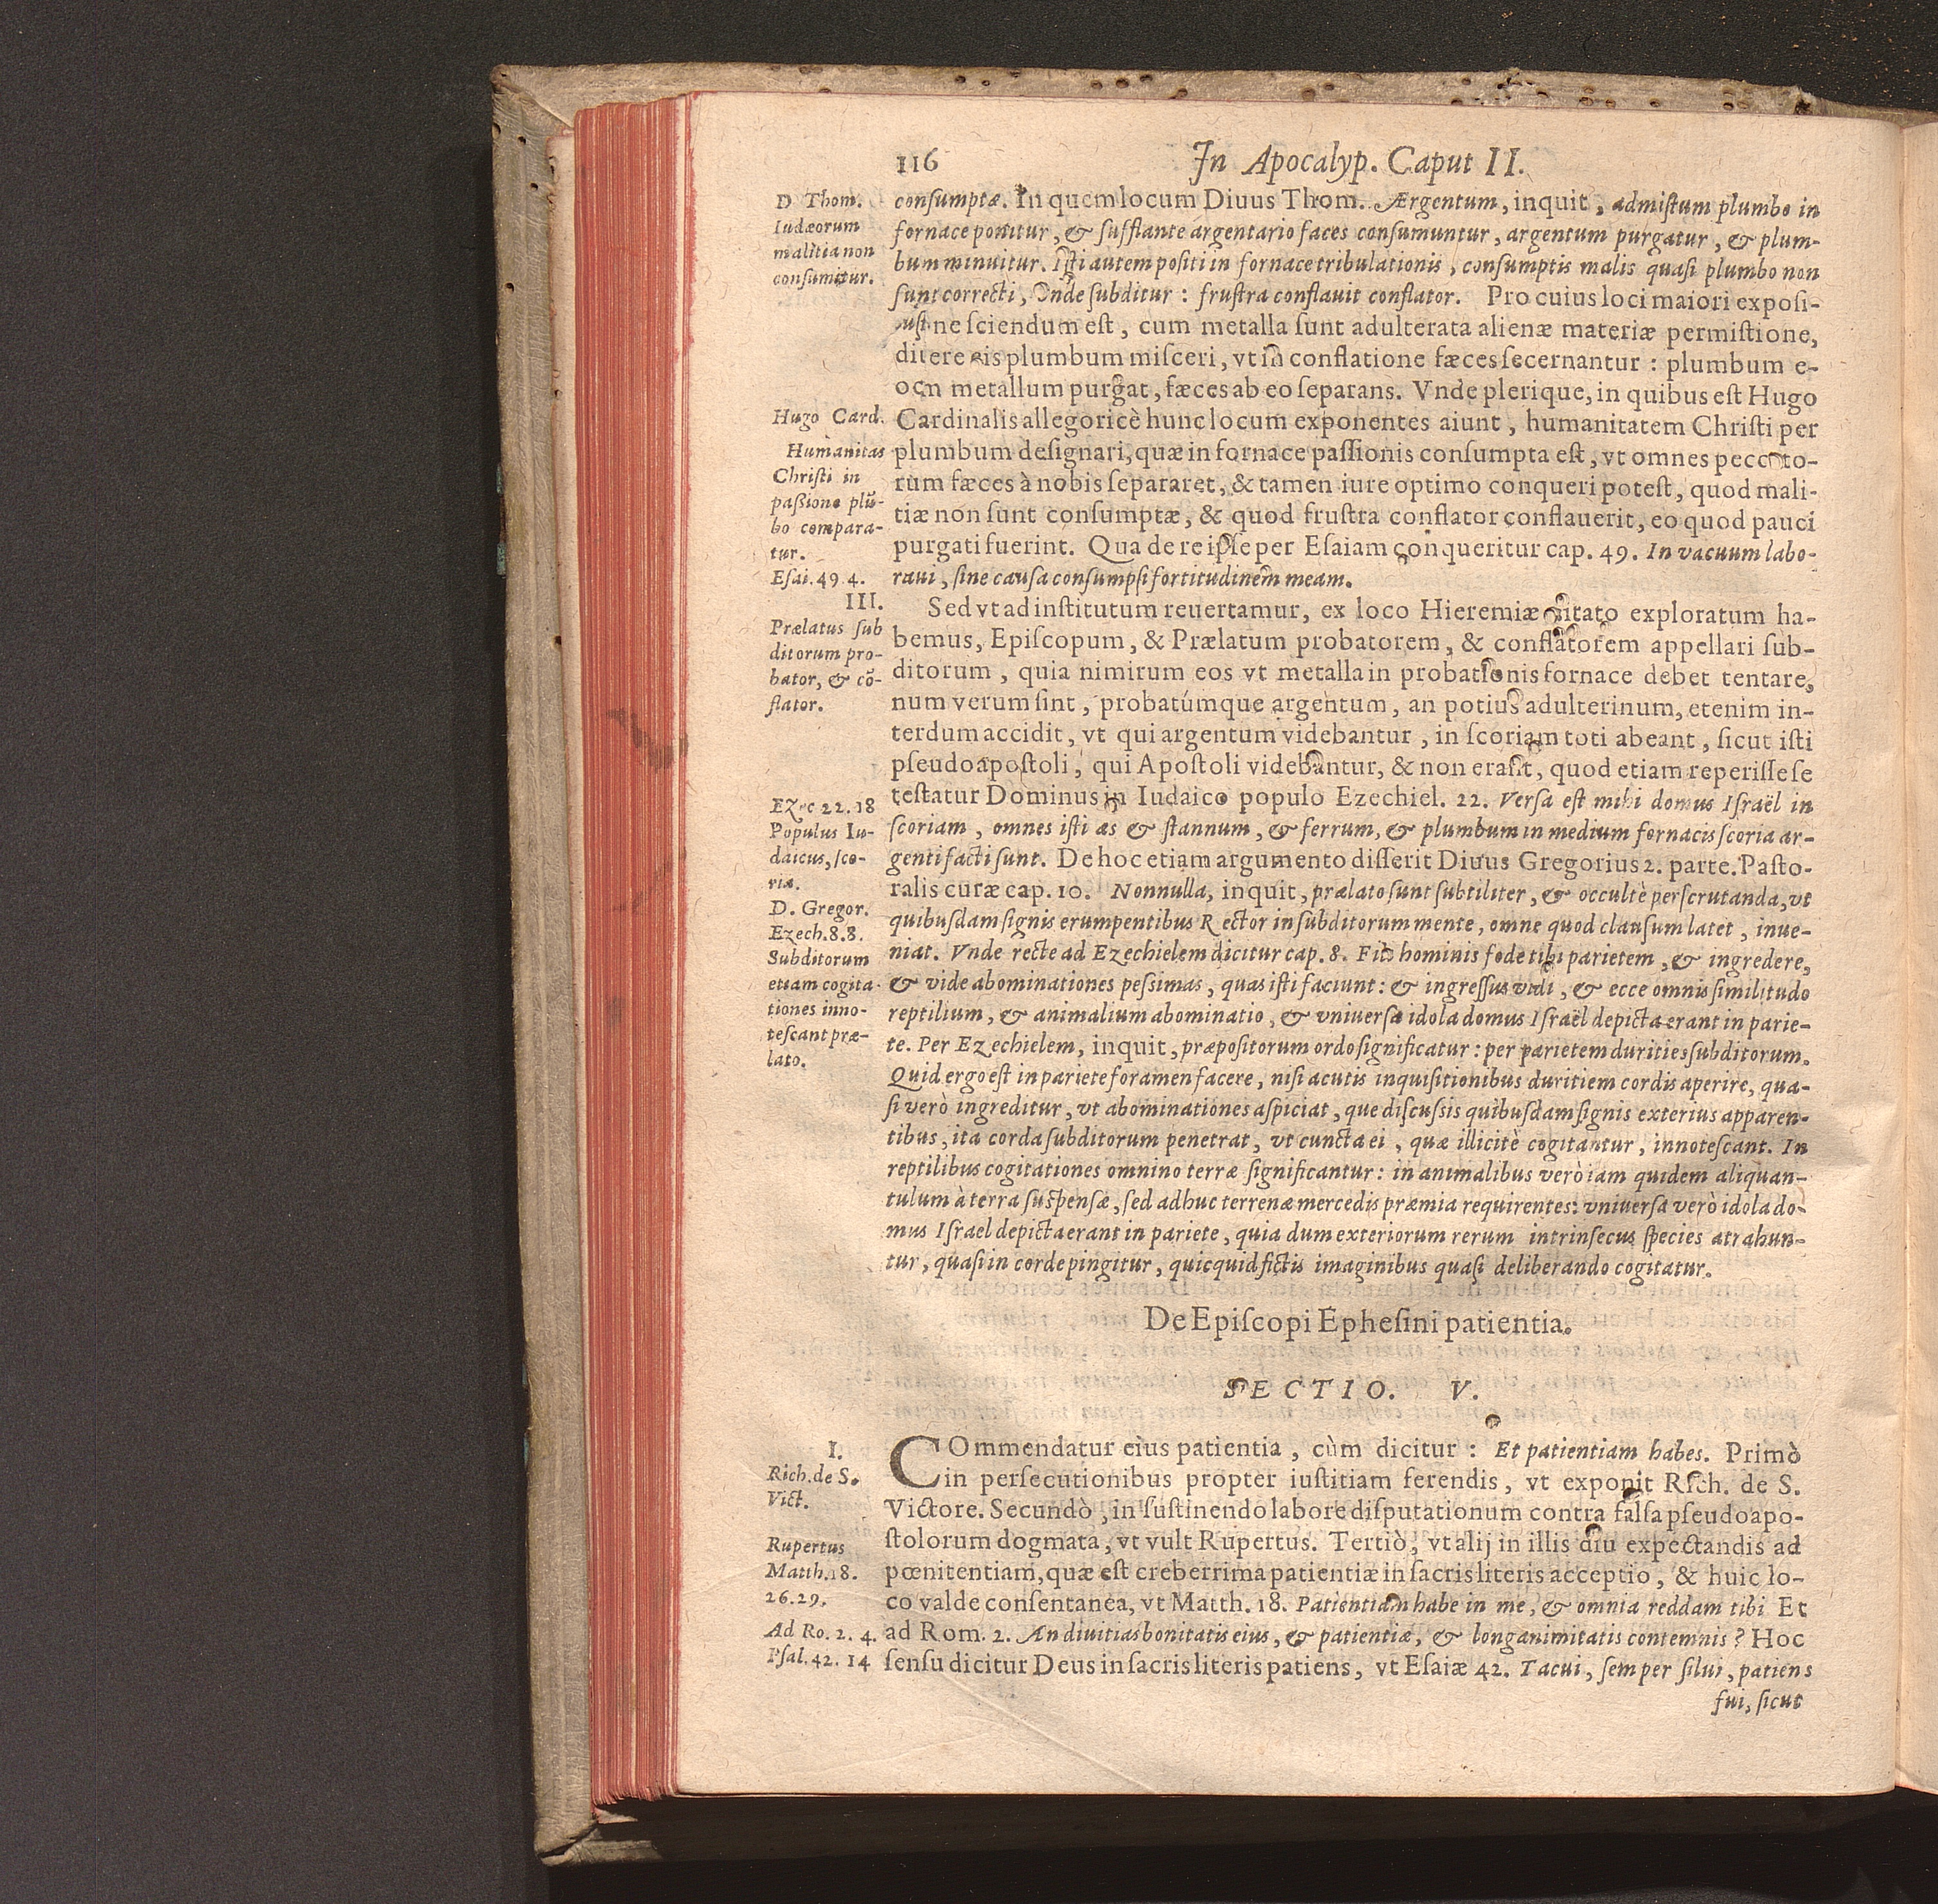 116
In Apocalyp. Caput II.
D Thom.
Iudæorum
malitia non
consumitur.
consumptæ. In quem locum Diuus Thom. Argentum, inquit, admistum plumbo in
fornace ponitur, & sufflante argentario faces consumuntur, argentum purgatur, & plum-
bum minuitur. Isti autem positi in fornace tribulationis, consumptis malis quasi plumbo non
sunt correcti, Vnde subditur: frustra conflauit conflator. Pro cuius loci maiori exposi-
ne sciendum est, cum metalla sunt adulterata alienæ materiæ permistione,
plumbum misceri, vt in conflatione fæces secernantur: plumbum e-
metallum purgat, fæces ab eo separans. Vnde plerique, in quibus est Hugo
Hugo Card.
Cardinalis allegoricè hunc locum exponentes aiunt, humanitatem Christi per
Humanitas
Christi in
passione plū-
bo compara-
tur.
Esai. 49 4.
plumbum designari, quæ in fornace passionis consumpta est, vt omnes peccato-
rum fæces à nobis separaret, & tamen iure optimo conqueri potest, quod mali-
tiæ non sunt consumptæ, & quod frustra conflator conflauerit, eo quod pauci
purgati fuerint. Qua de re ipse per Esaiam conqueritur cap. 49. In vacuum labo-
raui, sine causa consumpsi fortitudinem meam.
III.
Prælatus sub
ditorum pro-
bator, & cō-
flator.
Sed vt ad institutum reuertamur, ex loco Hieremiæ citato exploratum ha-
bemus, Episcopum, & Prælatum probatorem, & conflatorem appellari sub-
ditorum, quia nimirum eos vt metalla in probationis fornace debet tentare,
num verum sint, probatúmque argentum, an potius adulterinum, etenim in-
terdum accidit, vt qui argentum videbantur, in scoriam toti abeant, sicut isti
pseudoapostoli, qui Apostoli videbantur, & non erant, quod etiam reperisse se
Ezec 22. 18
Populus Iu-
daicus, sco-
ria.
testatur Dominus in Iudaico populo Ezechiel. 22. Versa est mihi domus Israël in
scoriam, omnes isti æs & stannum, & ferrum, & plumbum in medium fornacis scoria ar-
genti facti sunt. De hoc etiam argumento disserit Diuus Gregorius 2. parte. Pasto-
ralis curæ cap. 10. Nonnulla, inquit, prælato sunt subtiliter, & occultè perscrutanda, vt
D. Gregor.
Ezech. 8. 8.
Subditorum
etiam cogita-
tiones inno-
tescant præ-
lato.
quibusdam signis erumpentibus Rector in subditorum mente, omne quod clausum latet, inue-
niat. Vnde recte ad Ezechielem dicitur cap. 8. Fili hominis fode tibi parietem, & ingredere,
& vide abominationes pessimas, quas isti faciunt: & ingressus vidi, & ecce omnis similitudo
reptilium, & animalium abominatio, & vniuersa idola domus Israël depicta erant in parie-
te. Per Ezechielem, inquit, præpositorum ordo significatur: per parietem durities subditorum.
Quid ergo est in pariete foramen facere, nisi acutis inquisitionibus duritiem cordis aperire, qua-
si verò ingreditur, vt abominationes aspiciat, que discussis quibusdam signis exterius apparen-
tibus, ita corda subditorum penetrat, vt cuncta ei, quæ illicitè cogitantur, innotescant. In
reptilibus cogitationes omnino terræ significantur: in animalibus verò iam quidem aliquan-
tulum à terra suspensæ, sed adhuc terrenæ mercedis præmia requirentes: vniuersa verò idola do-
mus Israel depicta erant in pariete, quia dum exteriorum rerum intrinsecus species atrahun-
tur, quasi in corde pingitur, quicquid fictis imaginibus quasi deliberando cogitatur.
De Episcopi Ephesini patientia.
SECTIO. V.
I.
Rich. de S.
Vict.
COmmendatur eius patientia, cùm dicitur: Et patientiam habes. Primò
in persecutionibus propter iustitiam ferendis, vt exponit Rich. de S.
Victore. Secundò, in sustinendo labore disputationum contra falsa pseudoapo-
Rupertus
Matth. 18.
26. 29.
stolorum dogmata, vt vult Rupertus. Tertiò, vt alij in illis diu expectandis ad
pœnitentiam, quæ est creberrima patientiæ in sacris literis acceptio, & huic lo-
co valde consentanea, vt Matth. 18. Patientiam habe in me, & omnia reddam tibi Et
Ad Ro. 2. 4.
Psal. 42. 14
ad Rom. 2. An diuitias bonitatis eius, & patientiæ, & longanimitatis contemnis? Hoc
sensu dicitur Deus in sacris literis patiens, vt Esaiæ 42. Tacui, semper silui, patiens
fui, sicut